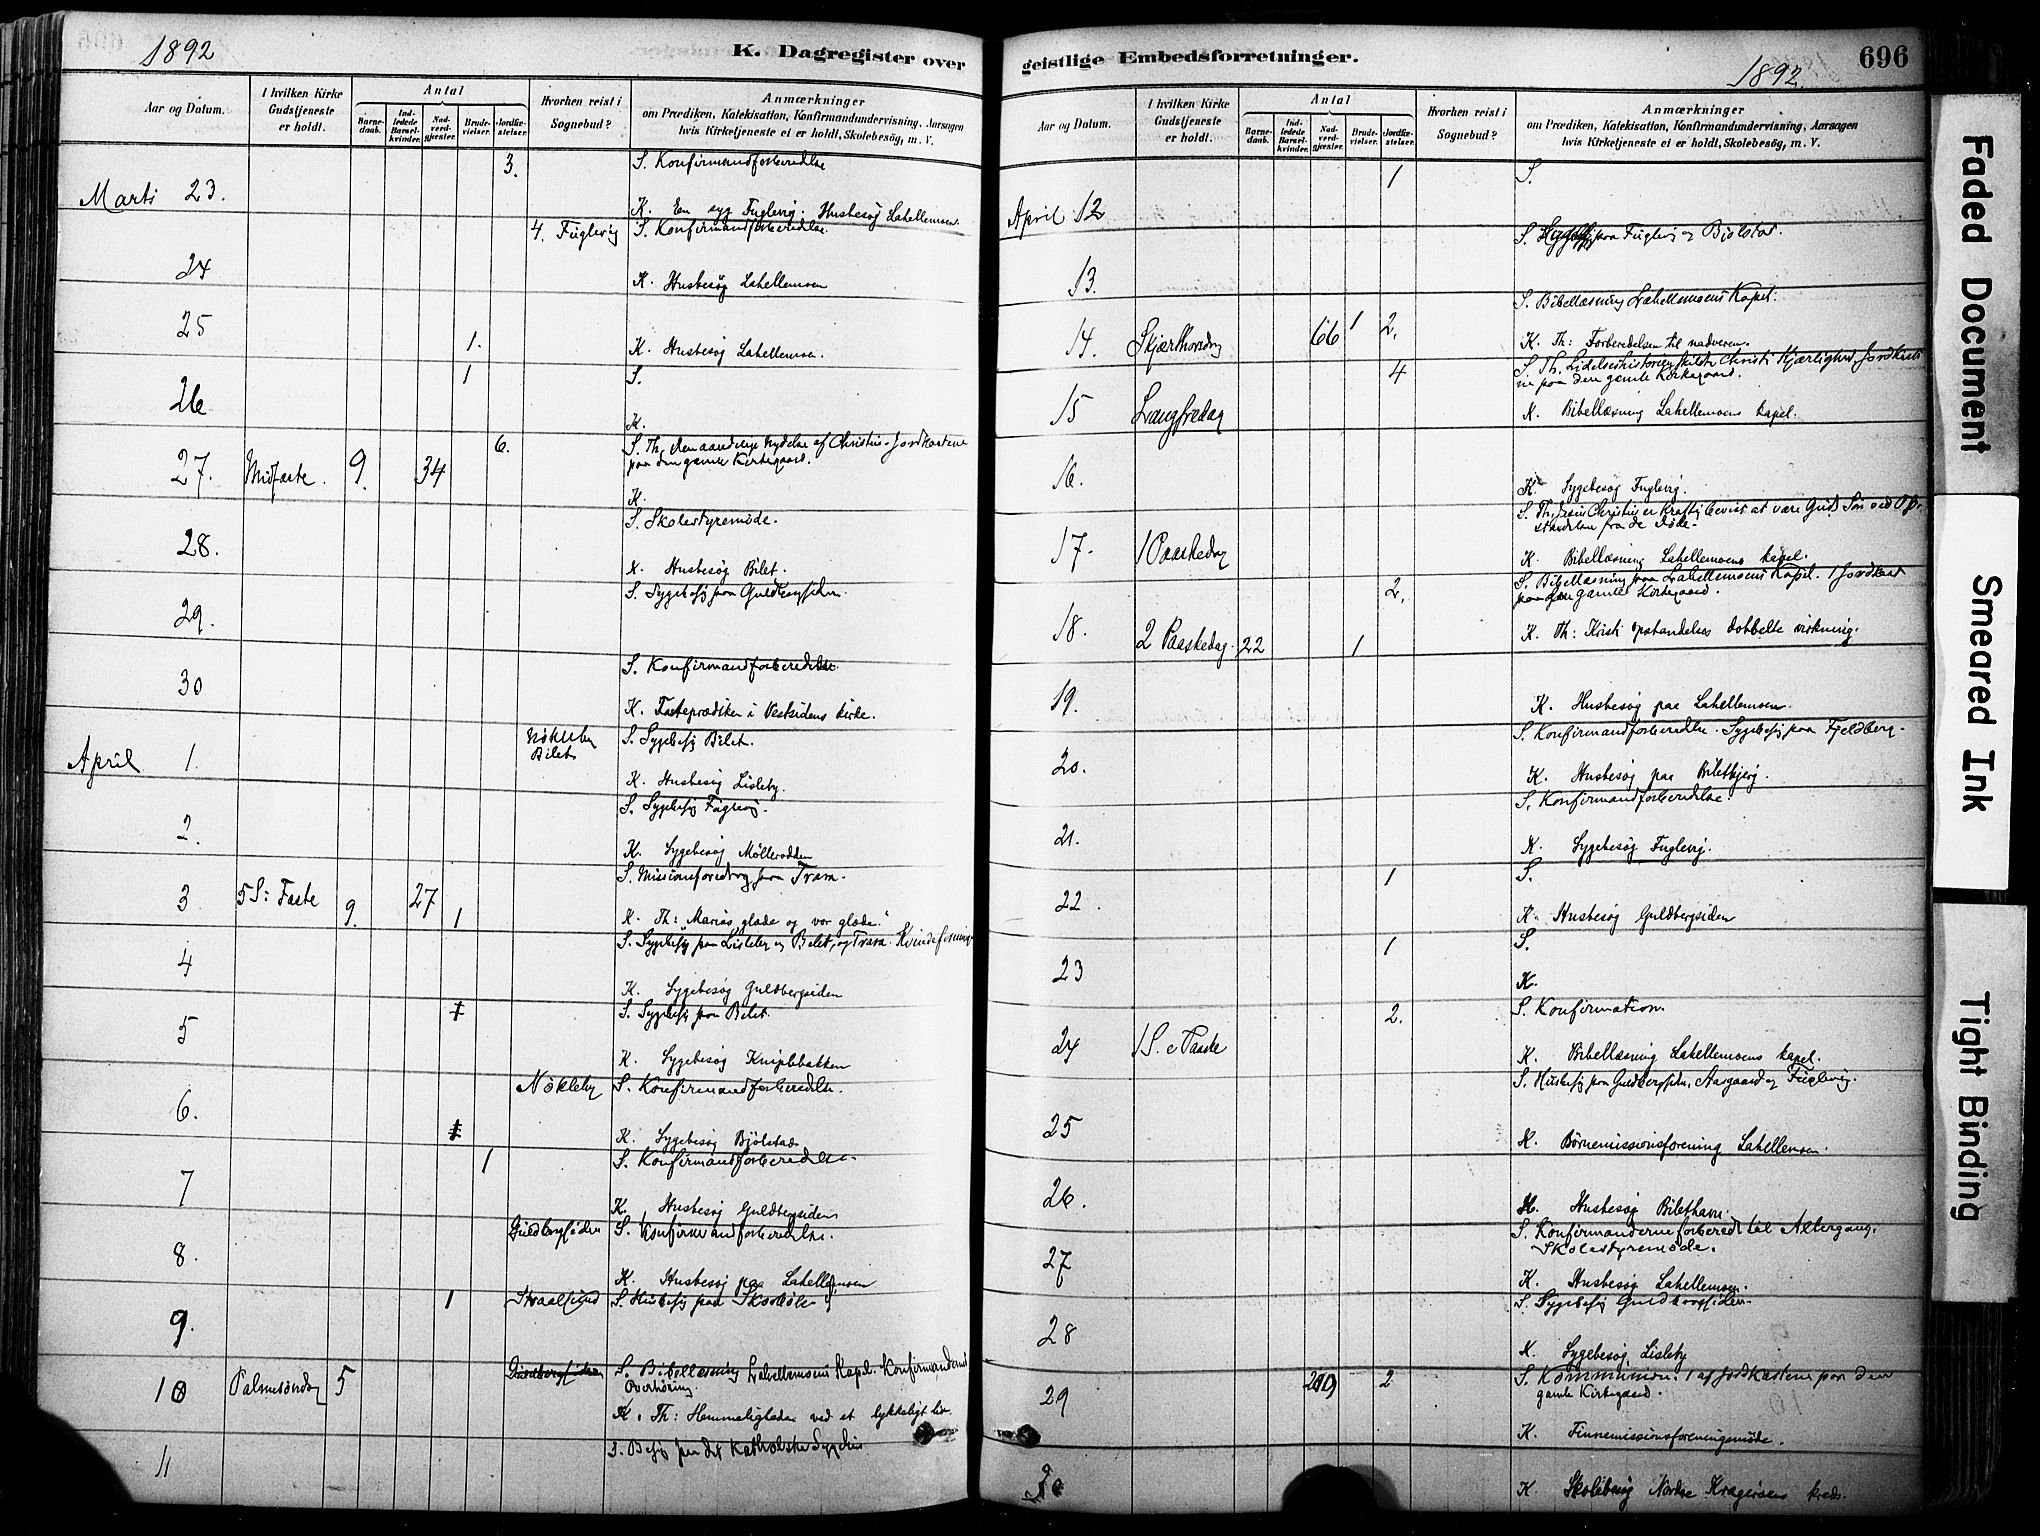 1892
K. Dagregister over
Aar og Datum.
I hvilken Kirke Gudstjeneste er holdt.
Antal
Barnedaab.
Indledede Barselkvinder.
Nadverdgjester.
Brudevielser.
Jordfæstelser.
Hvorhen reist i Sognebud?
Anmærkninger
om Prædiken, Katekisation, Konfirmandundervisning, Aarsagen
hvis Kirketjeneste ei er holdt, Skolebesög, m. V.
Marts 23. 3. S. Konfirmandforberedelse
K. En syg Fuglevig. Husbesøg Lahellemoen
24 4. Fuglevig S. Konfirmandforberedelse.
K. Husbesøg Lahellemoen
25 1.
K. Husbesøg Lahellemoen.
26 1 S.
K.
27. Midfaste. 9. 34 6. S. Th. Den aandelige Nydelse af Christus. Jordkastene
paa den gamle Kirkegaard.
K.
28. S. Skolestyremøde.
K. Husbesøg Bilet.
29. S. Sygebesøg paa Guldbergsiden.
30 S. Konfirmandforberedelse.
K. Fasteprædiken i Vestsidens kirke.
April 1. Nökleby Bilet S. Sygebesøg Bilet.
K. Husbesøg Lisleby.
2. S. Sygebesøg Fuglevig.
K. Sygebesøg Møllerodden
3 5 S: Faste 9. 27 1 S. Missionsforedrag paa Trara.
K. Th: "Marias glæde og vor glæde."
4 S. Sygebesøg paa Lisleby og Bilet, og Trara Kvindeforening
K. Sygebesøg Guldbergsiden
5 S. Sygebesøg paa Bilet.
K. Sygebesøg Kniplebakken
6. Nökleby S. Konfirmandforberedelse.
K. Sygebesøg Bjølstad
7 1 S. Konfirmandforberedelse.
K. Husbesøg Guldbergsiden
8. Guldbergsiden S. Konfirmandforberedelse.
K. Husbesøg paa Lahellemoen
9. 1 Straalsund S. Husbesøg paa
10 Palmesöndag 5 Guldbergsiden S. Bibellæsning Lahellemoens Kapel. Konfirmandernes
Overhøring.
K. Th: Hemmeligheden ved et lykkeligt liv.
11 S. Besøg paa det katholske Sygehus
geistlige Embedsforretninger.
1892.
696
Aar og Datum.
I hvilken Kirke Gudstjeneste er holdt.
Antal
Barnedaab.
Indledede Barselkvinder.
Nadverdgjester.
Brudevielser.
Jordfæstelser.
Hvorhen reist i Sognebud?
Anmærkninger
om Prædiken, Katekisation, Konfirmandundervisning, Aarsagen
hvis Kirketjeneste ei er holdt, Skolebesög, m. V.
April 12 1 S.
13. S. paa Fuglevig og Bjølstad.
14. Skjærthorsdag 66 1 2. S. Bibellæsning Lahellemoens Kapel.
K. Th: Forberedelsen til nadveren.
15 Langfredag 4 S. Th. Lidelseshistorien skildrer Christi Kjærlighed. Jordkast
ne paa den gamle Kirkegaard.
K. Bibellæsning Lahellemoens kapel.
16.
K. Sygebesøg Fuglevig.
17. 1 Paaskedag S. Th. Jesus Christus er kraftig bevist at være Guds Søn ved Op-
standelsen fra de Døde.
K. Bibellæsning Lahellemoens kapel.
18. 2 Paaskedag. 22 1 2. S. Bibellæsning paa Lahellemoens Kapel. 1 Jordkast
paa den gamle Kirkegaard.
K. Th: Kristi opstandelses dobbelte virkning.
19.
K. Husbesøg paa Lahellemoen.
20. S. Konfirmandforberedelse. Sygebesøg paa Fjeldberg.
K. Husbesøg paa Biletbjerg.
21. S. Konfirmandforberedelse.
K. Sygebesøg Fuglevig.
22. 1 S.
K. Husbesøg Guldbergsiden
23 1 S.
K.
24 1 S. e Paaske 2. S. Konfirmation
K. Bibellæsning Lahellemoens kapel.
25 S. Husbesøg paa Guldbergsiden, Aasgaard og Fuglevig.
K. Børnemissionsforening Lahellemoen.
26.
K. Husbesøg Bilethavn.
27 S. Konfirmanderne forberedt til Altergang.
Skolestyremøde.
K. Husbesøg Lahellemoen.
28 S. Sygebesøg Guldbergsiden
K. Sygebesøg Lisleby
29 2 S. Kommunion. 1 af Jordkastene paa den
gamle Kirkegaard.
K. Finnemissionsforeningsmøde.
30
K. Skolebesøg Nordre Kragerøens kreds.
Faded Document
Smeared Ink
Tight Binding